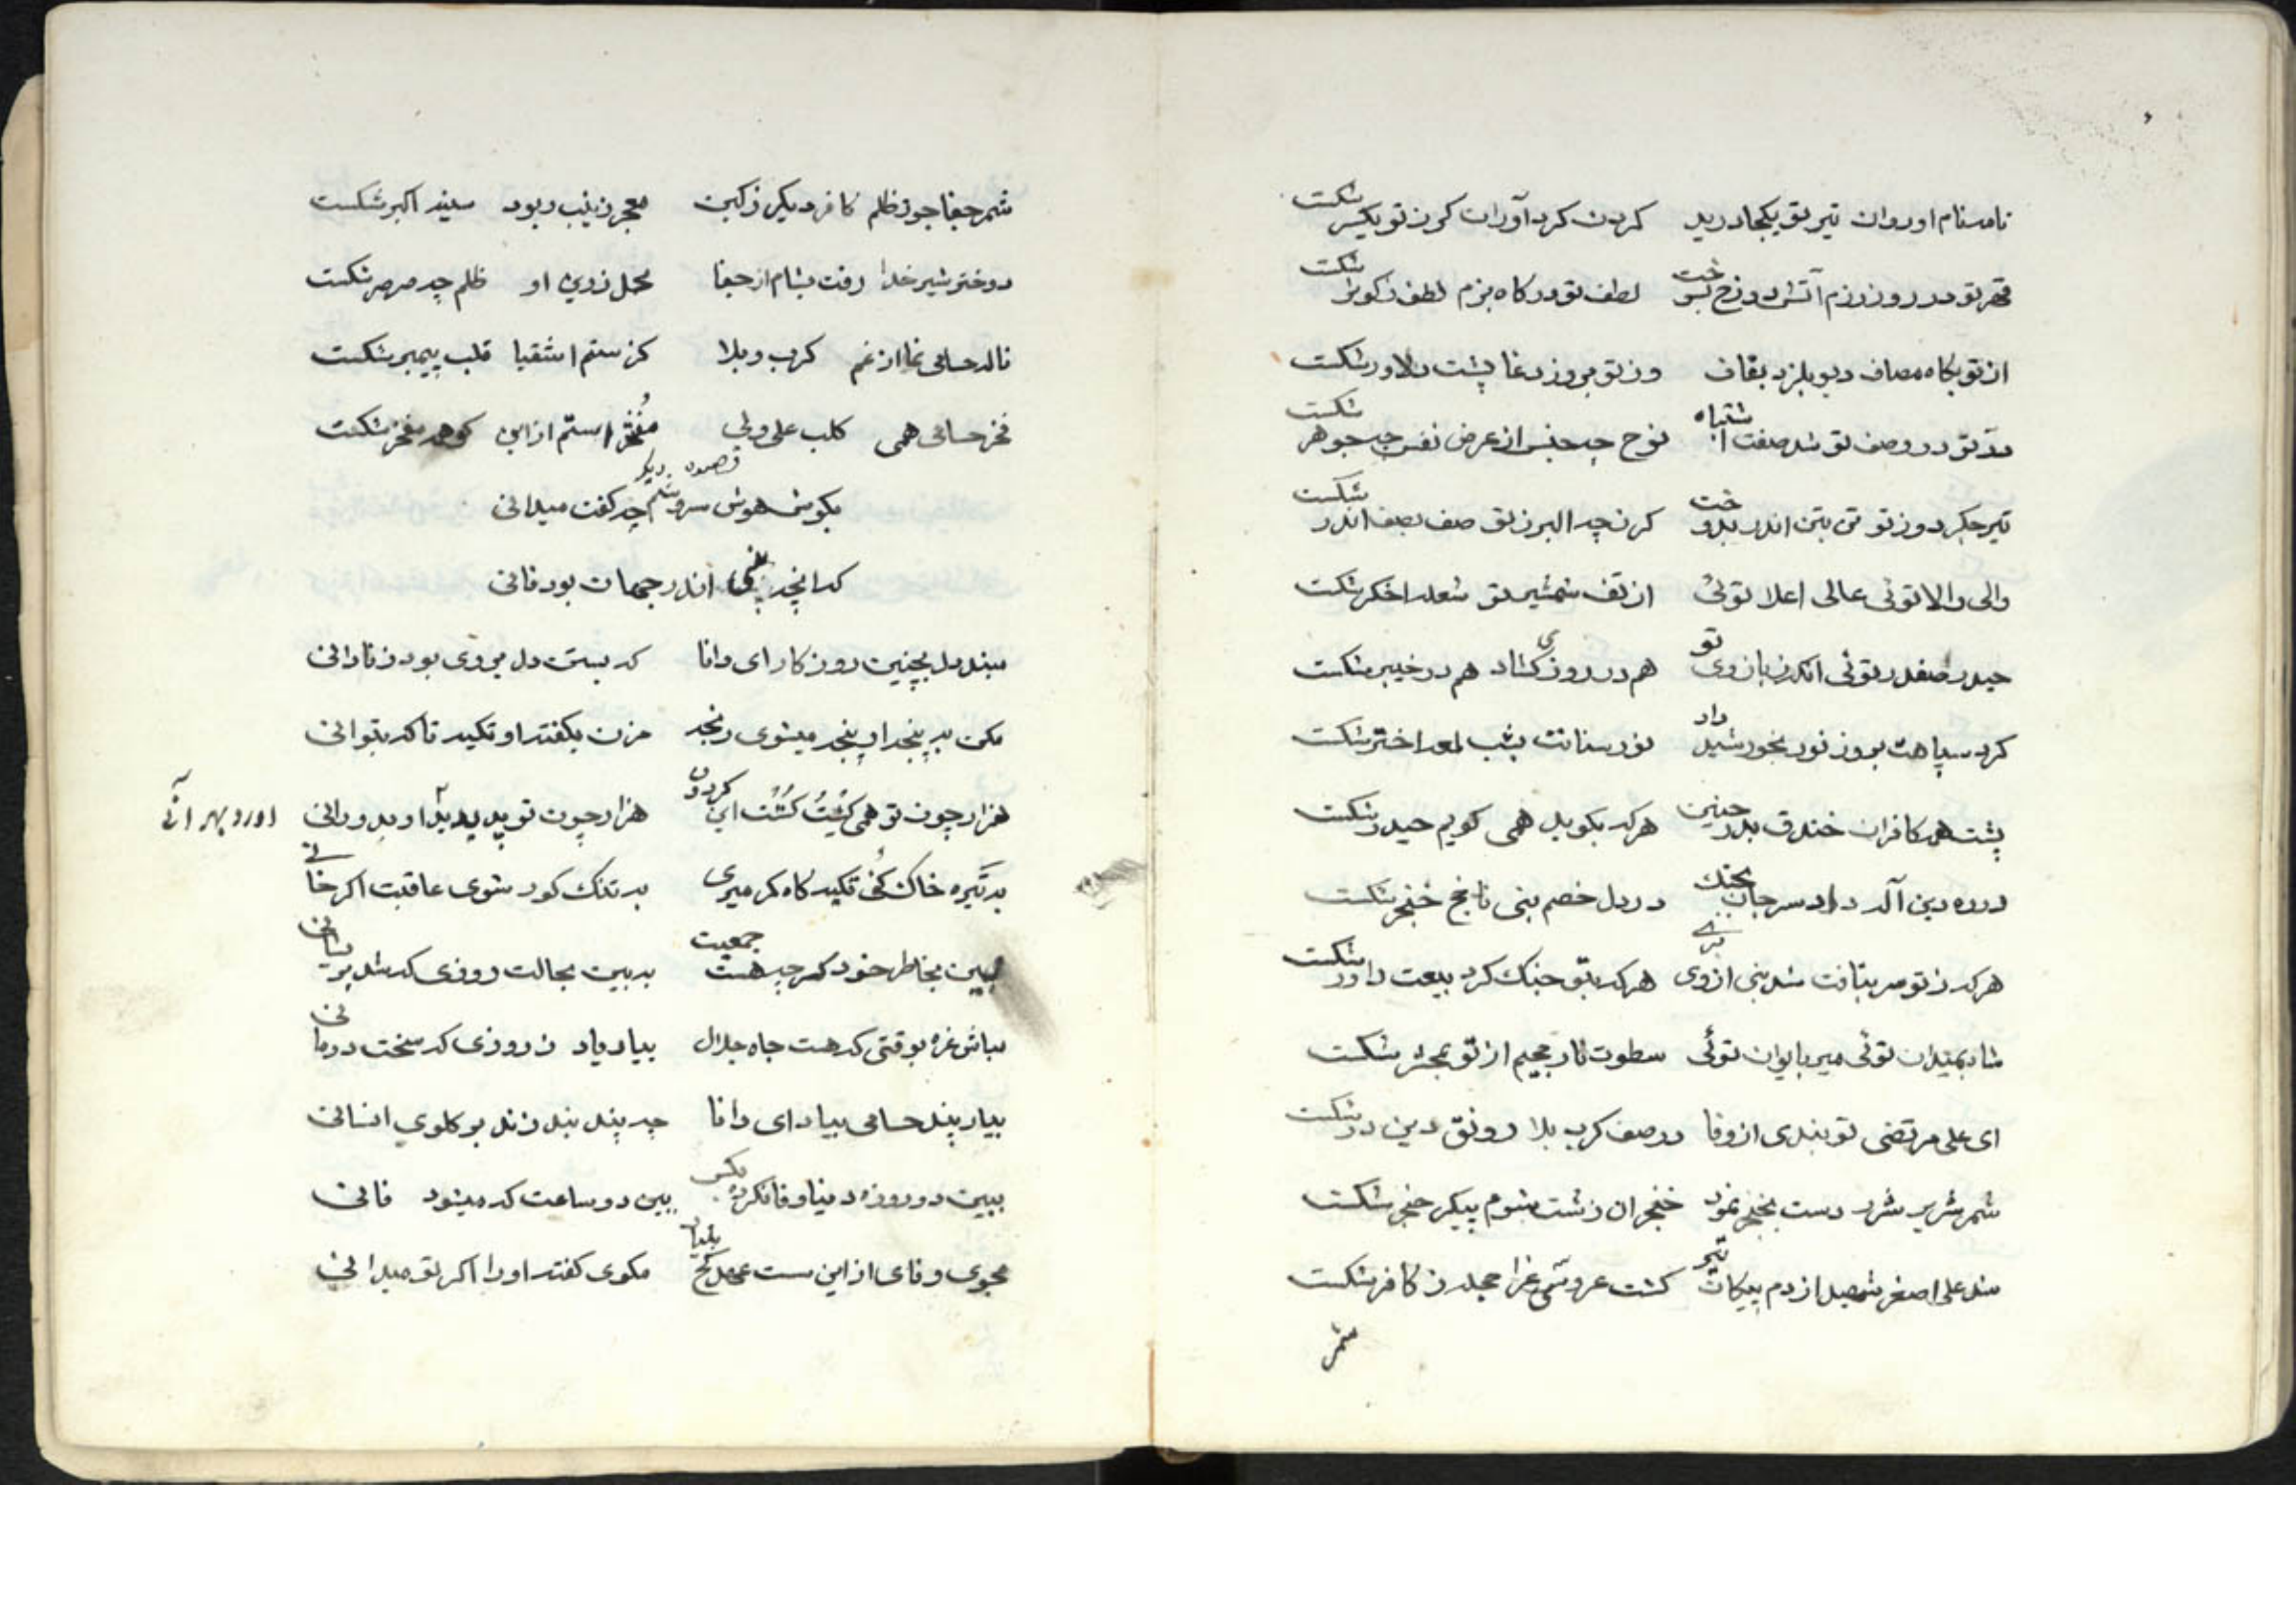 نامه نام اوروان تیر تو یکجا درید کردن کرد آوران کرز تو یکسر شکست
قهر تو در روز رزم آتش دوزخ بسوخت لطف تو در کاه بزم لطف ز کوثر شکست
از تو بکاه مصاف دیو بلرزد بقاف وز تو بروز دغا پشت دلاور شکست
در وصف تو شد صفت اشتباه نوح چه جنس از عرض نفس چه جوهر شکست
تیر جکر دوز تو تن بتن اندر بدوخت کرزچه البرز تو صف بصف اندر شکست
والی والا توئی عالی اعلا توئی از تف شمشیر تو شعله اخکر شکست
حیدر صفدر توئی انکه ز بازوی تو هم در روزی کشاد هم در خیبر شکست
کرد سپاهت بروز نور بخورشید داد نور سنانت بشب لمعه اختر شکست
پشت همه کافران خندق بدر حنین هر که بکوید همی کویم حیدر شکست
در ره دین آنکه داد سر جان بجنک در دل خصم نبی ناخج خنجر شکست
هر که ز تو سر بتافت شد نبی از وی بری هر که بتو جنک کرد بیعت داور شکست
شاه بمیدان توئی میر بایوان توئی سطوت نار جحیم از تو بمحشر شکست
ای علی مرتضی تو بندی از وفا در صف کرب بلا رونق دین در شکست
شمر شریر شرر دست بخنجر نمود خنجر ان زشت شوم پیکر حنجر شکست
شد علی اصغر شهید از دم پیکان تیر کشت عروسی عزا حجله ز کافر شکست
شمر
شمر جفا جوز ظلم کافر دیکر ز کین معجر زینب ربود سینه اکبر شکست
دوختر شیر خدا رفت بشام از جفا محمل زرین او ظلم چه صرصر شکست
ناله حسامی نما از غم کرب و بلا کز ستم اشقیا قلب پیمبر شکست
فخر حسامی همی کلب علی ولی مُفتخر استم از این کوهر مفخر شکست
قصیده دیکر
بکوش هوش سروشم چه کفت میدانی
که انچه بینی اندر جهان بود فانی
مبند دل بچنین روزکار ای دانا که بستن دل بر وی بود ز نادانی
مکن به پنجه او پنجه میشوی رنجه مزن بکفته او تکیه تا که بتوانی
هزار چون تو همی کِشتُ کُشت این کردون هزار چون تو پدید آرد او بدورانی اورد بهر آنی
به تیره خاک کُنی تکیه کاه کر میری به تنک کور شوی عاقبت اکر خانی
ببین بخاطر خود کرچه هست جمعیت به بین بحالت روزی که شد پریشانی
مباش غره بوقتی که هست جاه جلال بیار یاد ز روزی که سخت درمانی
بیار پند حسامی بیاد ای دانا چه پند بند زند بر کلوی انسانی
ببین دو روزه دنیا وفا نکرد بکس ببین دو ساعت که میشود فانی
مجوی وفای از این سست عهد کج بنیاد مکوی کفته او را اکر تو میدانی